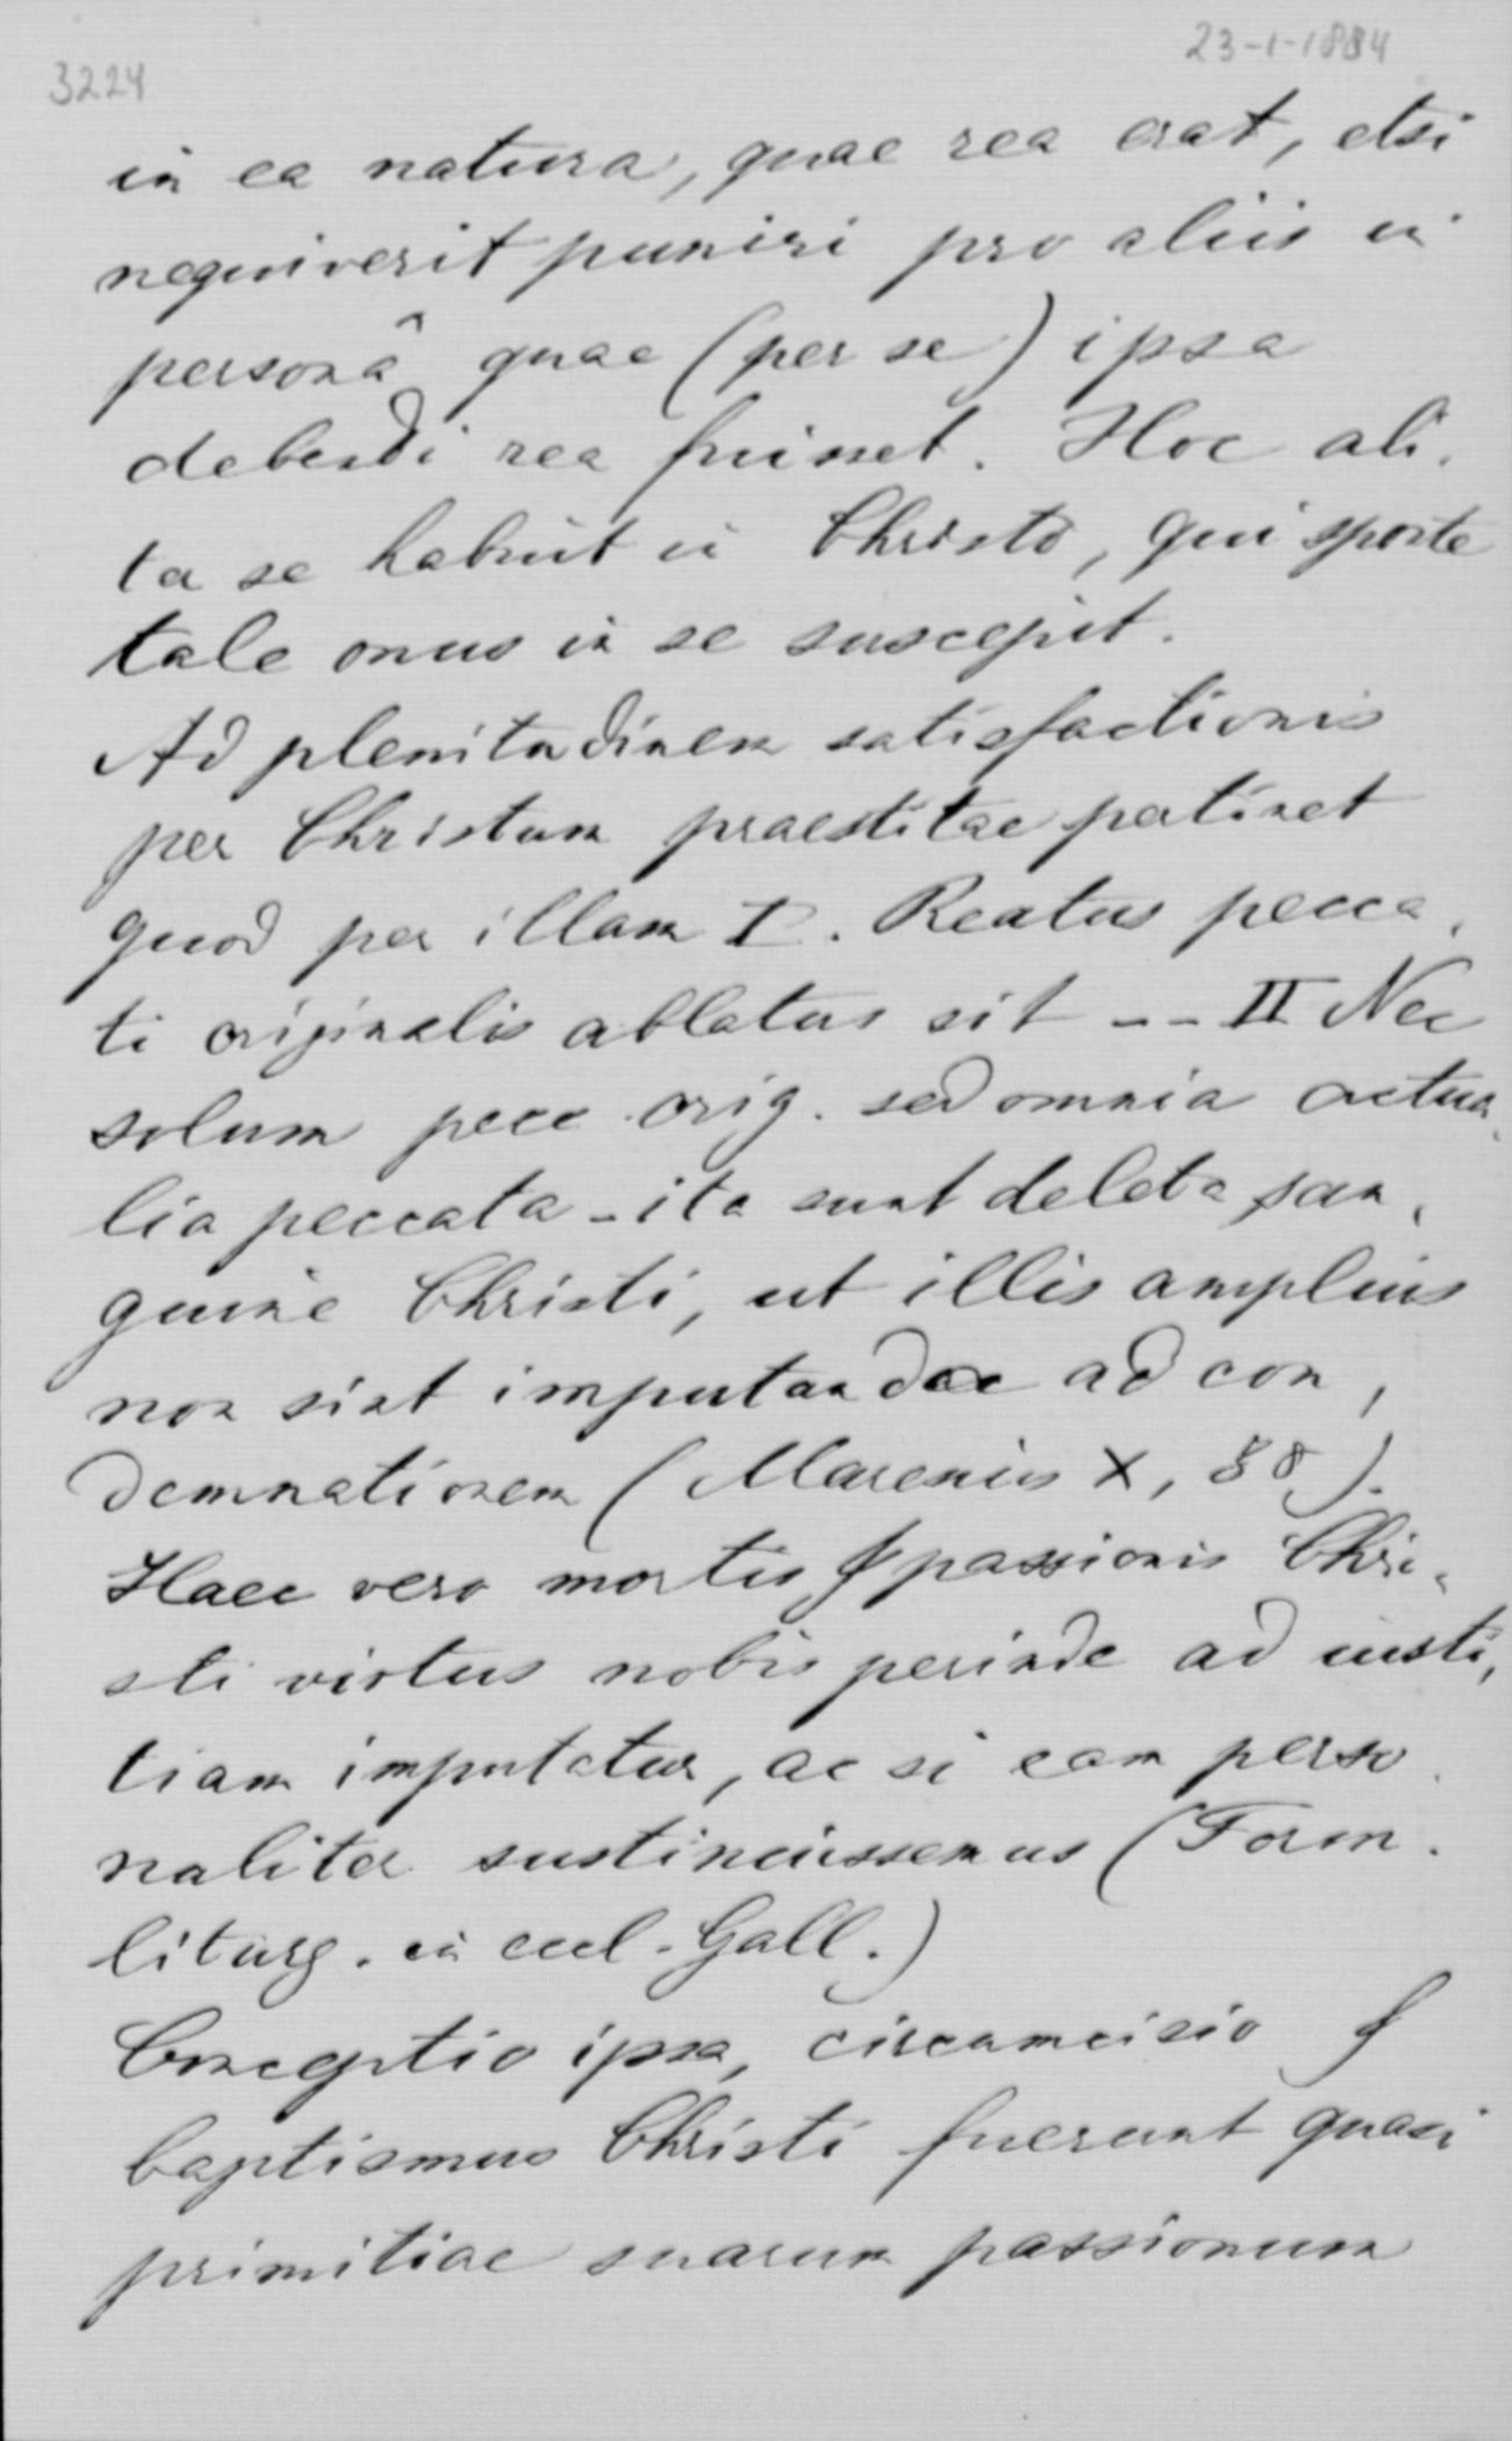 23-1-1884
3224
in ea natura, quae rea erat, etsi
nequiverit puniri pro aliis in
personâ quae (per se) ipsa
debendi rea fuisset. Hoc ali,
ta se habuit in Christo, qui sponte
tale onus in se suscepit.
Ad plenitudinem satisfactionis
per Christum praestitae pertinet
quod per illam I. Reatus pecca,
ti originalis ablatus sit -- II Nec
solum pecc. orig. sed omnia actua,
lia peccata - ita sunt deleta san,
guine Christi, ut illis amplius
non sint imputandae ad con,
demnationem (Maresius X, 88).
Haec vero mortis & passionis Chri,
sti virtus nobis perinde ad iusti,
tiam imputatur, ac si eam perso,
naliter sustinuissemus (Form.
liturg. in eccl. Gall.)
Conceptio ipsa, circumcisio &
baptismus Christi fuerunt quasi
primitiae suarum passionum